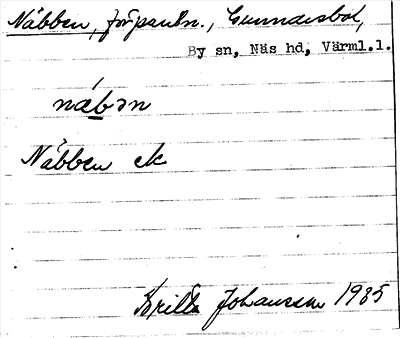 Näbben, förpantn., Gunnarsbol,
By sn, Näs hd, Värml.l.
næ̀bən
Näbben ek
Brita Johansson 1935